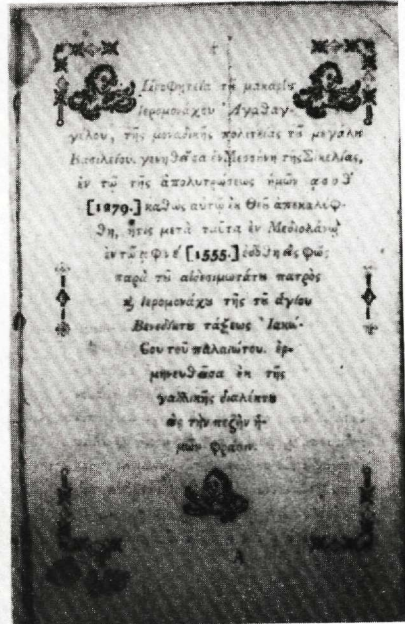 †
Προφητεία τȣ̃ μακαρίȣ
Ιερομονάχου Ἀγαθαγ-
γέλου, τῆς μοναδικῆς πολιτείας τȣ̃ μεγάλȣ
Βασιλείου. γενηθεῖσα ἐν Μεσσήνῃ τῆς Σικελίας,
ἐν τῷ τῆς ἀπολυτρώσεως ἡμῶν ασοθ´
[1279.] καθὼς αὐτῷ ἐκ Θεȣ̃ ἀπεκαλύφ-
θη, ἥτις μετὰ ταῦτα ἐν Μεδιολάνῳ
ἐν τῷ αφνέ [1555.] ἐδόθη εἰς φῶς;
παρὰ τȣ̃ αἰδεσιμωτάτȣ πατρὸς
ϗ ἱερομονάχȣ τῆς τȣ̃ ἁγίου
Βενεδίκτȣ τάξεως Ἰακώ-
βου τοῦ παλαιώτου. ἑρ-
μηνευθεῖσα ἐκ τῆς
γαλλικῆς διαλέκτȣ
εἰς τὴν πεζὴν ἡ-
μῶν φράσιν.